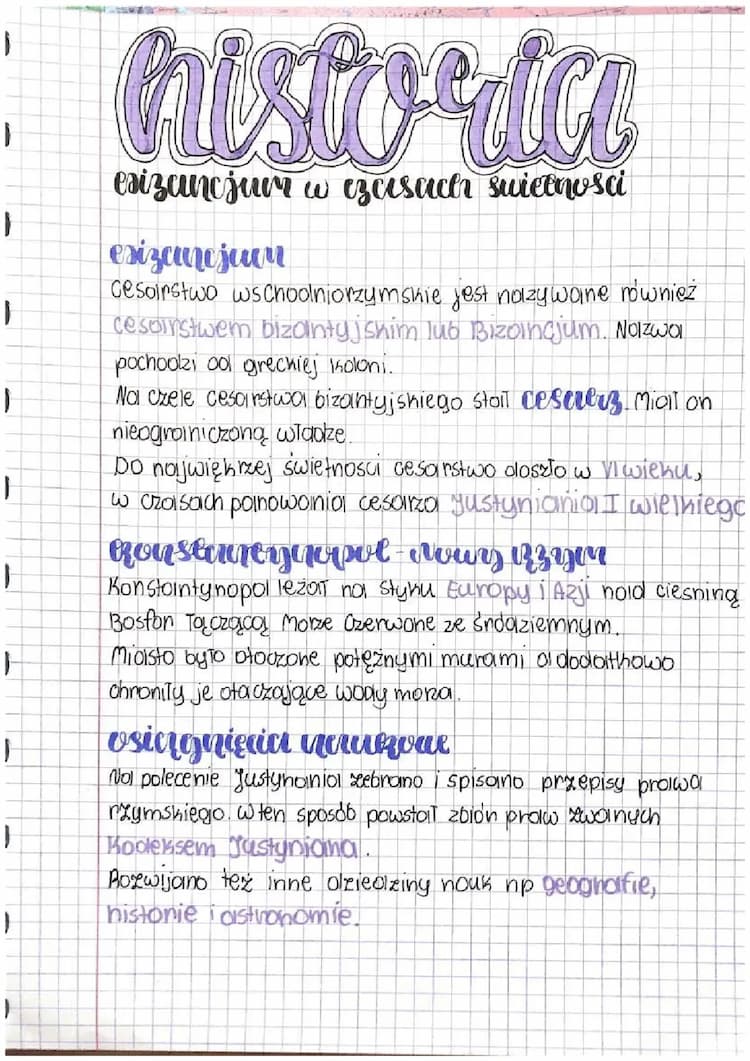 historia
Bizancjum w czasach świetności
Bizancjum
Cesarstwo wschodniorzymskie jest nazywane również
cesarstwem bizantyjskim lub Bizancjum. Nazwa
pochodzi od greckiej koloni.
Na czele cesarstwa bizantyjskiego stał cesarz. Miał on
nieograniczoną władze.
Do największej świetności cesarstwo doszło w VI wieku,
w czasach panowania cesarza Justyniania I wielkiego
Konstantynopol - Nowy Rzym
Konstantynopol leżał na styku Europy i Azji nad ciesniną
Bosfor łączącą Morze Czerwone ze śródziemnym.
Miasto było otoczone potężnymi murami a dodatkowo
chroniły je otaczające wody morza.
Osiągnięcia naukowe
Na polecenie Justyniania zebrano i spisano przepisy prawa
rzymskiego. W ten sposób powstał zbiór praw zwanych
Kodeksem Justyniana.
Rozwijano też inne dziedziny nauk np geografie,
historie i astronomie.